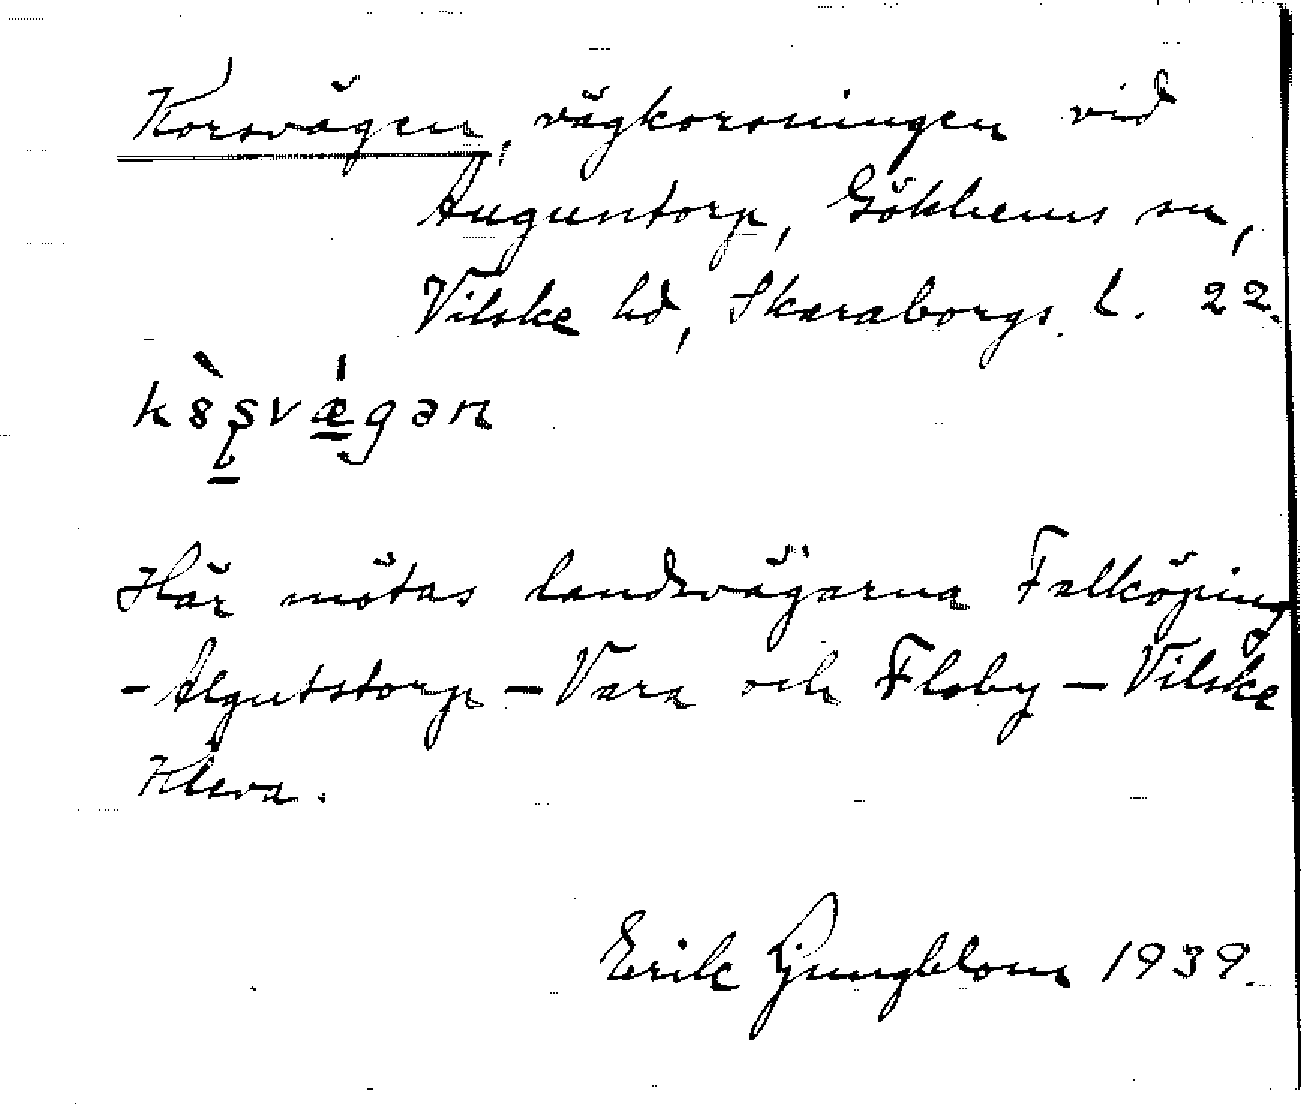 Korsvägen, vägkorsningen vid
Auguntorp, Gökhems sn,
Vilske hd, Skaraborgs l. 22.
Här mötas landsvägarna Falköping
- Algutstorp - Vara och Floby - Vilske
Kleva.
Erik Ljungblom 1939.